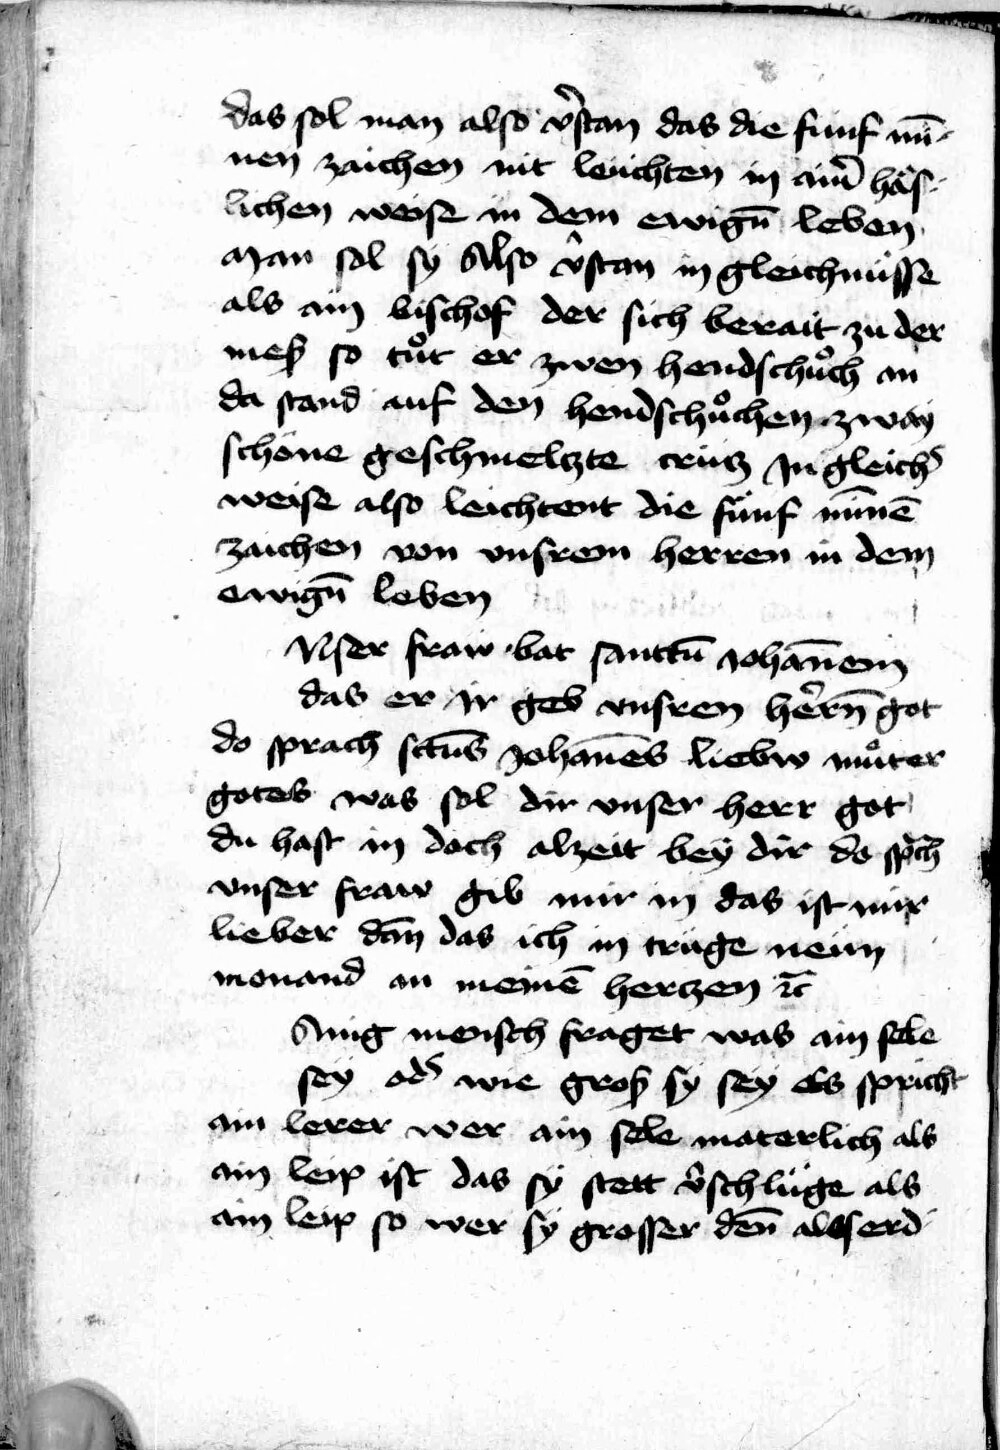 das sol man also v̄stan das die funf mī-
nen zaichen nit leuchten in aim̄ häs-
lichen weise in dem ewign̄ leben
Man sol sy Also v̄stan in gleichnüsse
als ain bischof der sich berait zu der
meß so tůt er zwen hendschůch an
da stand auf den hendschůchen zway
schöne geschmeltzte crütz In gleichʾ
weise also leichtent die fünf mīnē
zaichen von vnsrem herren in dem
ewign̄ leben
Vnser fraw bat sanctū Johān̄em
das er Ir geb vnsren hērn̄ got
do sprach sctūs Johānes liebw můter
gotes was sol dir vnser herr got
du hast in doch alzeit bey dir do sp̄ch
vnser fraw gib mir in das ist mir
lieber dān das ich in trüge neün
monand an meinē hertzen ⁊c̄
Ainig mensch fraget was ain sele
sey odʾ wie groß sy sey es spricht
ain lerer wer ain sele materlich als
ain leip ist das sy stett v̄schlüge als
ain leip so wer sy grosser den̄ alls erd